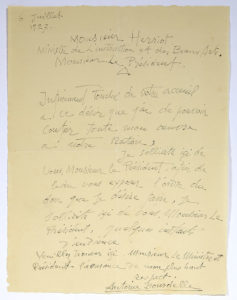 6 Juillet
1927.
Monsieur Herriot
Ministre de l'instruction et des Beaux Arts.
Monsieur le Président.
touché de votre accueil
et ce désir que j'ai de pouvoir
toute mon œuvre
à votre
Je sollicite ici de
Vous Monsieur le Président,
vous exposer
don que je désire faire, je
sollicite ici de vous Monsieur le
Président, quelques instants
d'audience
Veuillez trouver ici Monsieur le Ministre et
Président l'assurance de mon plus haut
respect.
Antoine Bourdelle